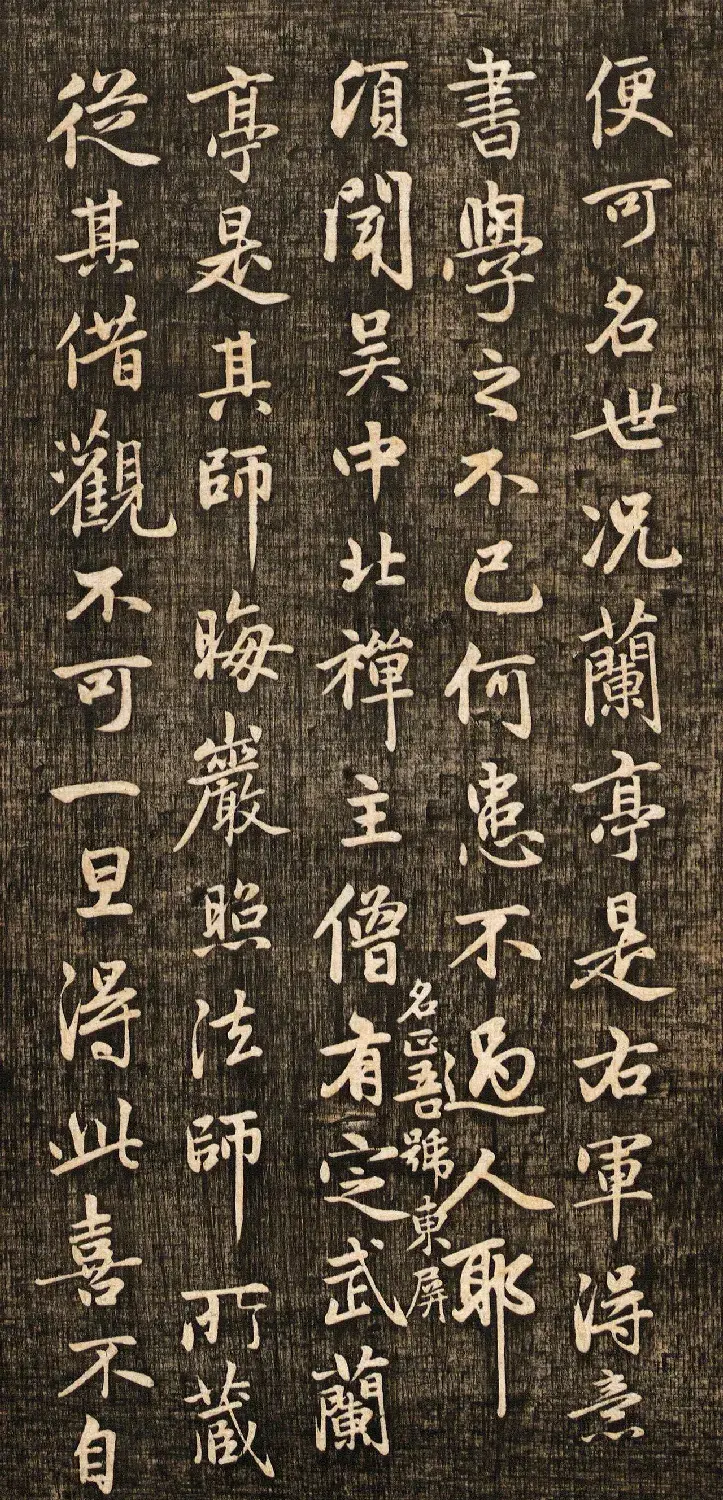 便可名世况蘭亭是右軍得意
書學之不已何患不過人耶
頃聞吳中北禪主僧有定武蘭
名正吾號東屏
亭是其師晦巖照法師所藏
從其借觀不可一旦得此喜不自